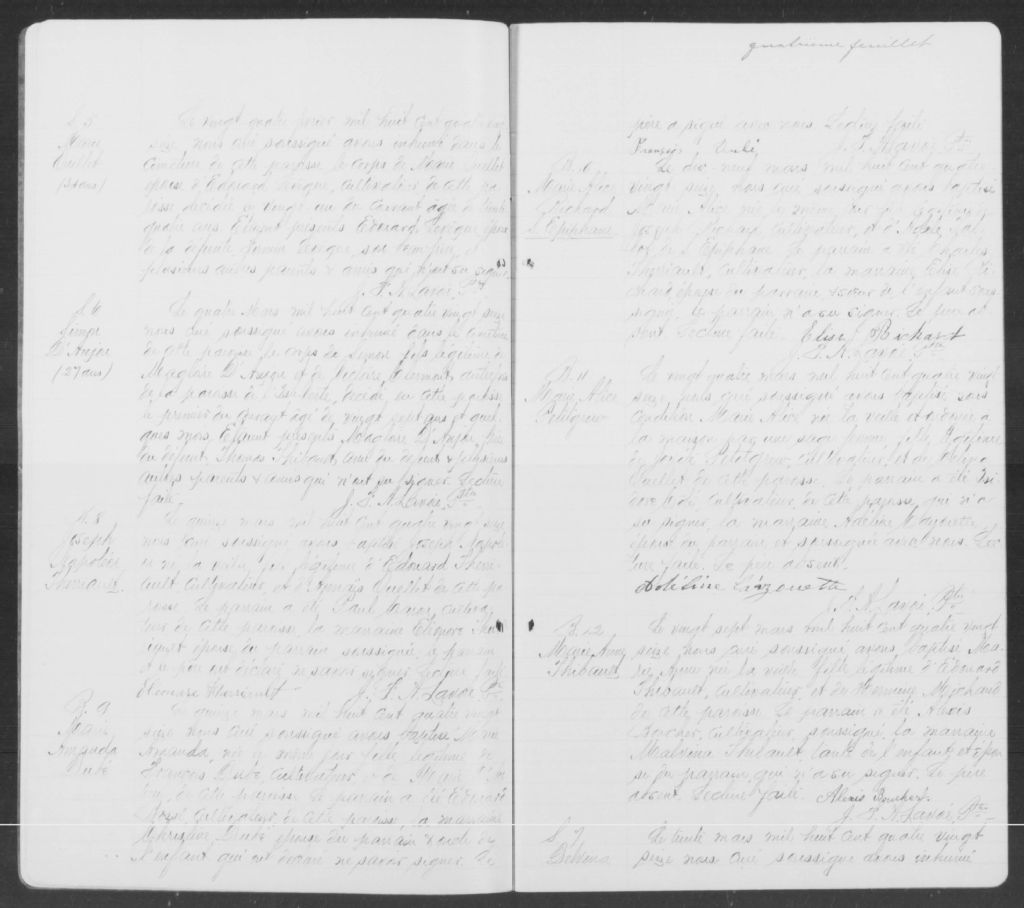 S. 5
Marie
Ouellet
(34 ans)
Le vingt quatre février mil huit cent quatre vingt
seize nous curé soussigné avons inhumé dans le
cimetière de cette paroisse le corps de Marie Ouellet
épouse d'Edouard Levêque, cultivateur de cette pa
roisse décédée le vingt un du courant âgée de trente
quatre ans. Etaient présents Edouard Levêque époux
de la défunte, Levêque, son
plusieurs autres parents & amis qui n'ont su signer.
J. P. N. Lavoie Ptre
S. 6
Simon
D'Anjou
(27 ans)
Le quatre Mars mil huit cent quatre vingt seize
nous curé soussigné avons inhumé dans le cimetière
de cette paroisse le corps de Simon fils légitime de
Magloire D'Anjou et de Clermont, autrefois
de la paroisse de l'Isle Verte, décédé en cette paroisse
le premier du courant âgé de vingt sept ans et quel
ques mois. Etaient présents Magloire D'Anjou, père
du défunt, Thomas Thibault, ami du défunt & plusieurs
autres parents & amis qui n'ont su signer. Lecture
faite.
J. P. N. Lavoie Ptre
B. 8
Joseph
Napoléon
Theriault
Le quinze mars mil huit cent quatre vingt seize
nous curé soussigné avons baptisé Joseph Napolé
on né la veille fils légitime d'Edouard Theri
ault, cultivateur et d' Ouellet de cette pa
roisse. Le parrain a été Paul cultiva
teur de cette paroisse, la marraine Eléonore The
riault épouse du parrain soussignée, le parrain
et le père ont déclaré ne savoir signer. Lecture faite.
Eléonore Theriault J. P. N. Lavoie Ptre
B. 9
Marie
Amanda
Dubé
Le quinze mars mil huit cent quatre vingt
seize nous curé soussigné avons baptisé Marie
Amanda, née le même jour fille légitime de
François Dubé cultivateur & de Marie
de cette paroisse. Le parrain a été Edouard
cultivateur de cette paroisse, la marraine
Christine Dubé épouse du parrain & tante de
l'enfant qui ont déclaré ne savoir signer. Le
quatrième feuillet
père a signé avec nous. Lecture faite
François Dubé J. P. N. Lavoie Ptre
B. 10
Marie Alice
Richard
St Epiphane
Le dix neuf mars mil huit cent quatre
vingt seize, nous curé soussigné avons baptisé
Marie Alice née le même jour fille légitime de
Joseph Richard, cultivateur, et d'
de St Epiphane. Le parrain a été Charles
Theriault, cultivateur, la marraine Elise Ri
chard épouse du parrain, & soeur de l'enfant sous
signée. Le parrain n'a su signer. Le père ab
sent. Lecture faite. Elise Richart
J. P. N. Lavoie Ptre
B. 11
Marie Alice
Petitgrew
Le vingt quatre mars mil huit cent quatre vingt
seize, nous curé soussigné avons baptisé sous
condition Marie Alice née la veille et ondoyée à
la maison par une sage femme, fille légitime
de Petitgrew, cultivateur, et de
Ouellet de cette paroisse. Le parrain a été Isi
dore cultivateur de cette paroisse, qui n'a
su signer, la marraine Adeline
épouse du parrain, et soussignée avec nous. Lec
ture faite. Le père absent.
Adéline
J. P. N. Lavoie Ptre
B. 12
Marie Anne
Thibault
Le vingt sept mars mil huit cent quatre vingt
seize nous curé soussigné avons baptisé Ma
rie Anne née la veille fille légitime d'Edouard
Thibault, cultivateur et de Michaud
de cette paroisse. Le parrain a été Alexis
Boucher, cultivateur, soussigné, la marraine
Malvina Thibault tante de l'enfant et épou
se du parrain, qui n'a su signer. Le père
absent. Lecture faite. Alexis Bouchert
J. P. N. Lavoie Ptre
S. 7
Delvina
Le trente mars mil huit cent quatre vingt
seize nous curé soussigné avons inhumé